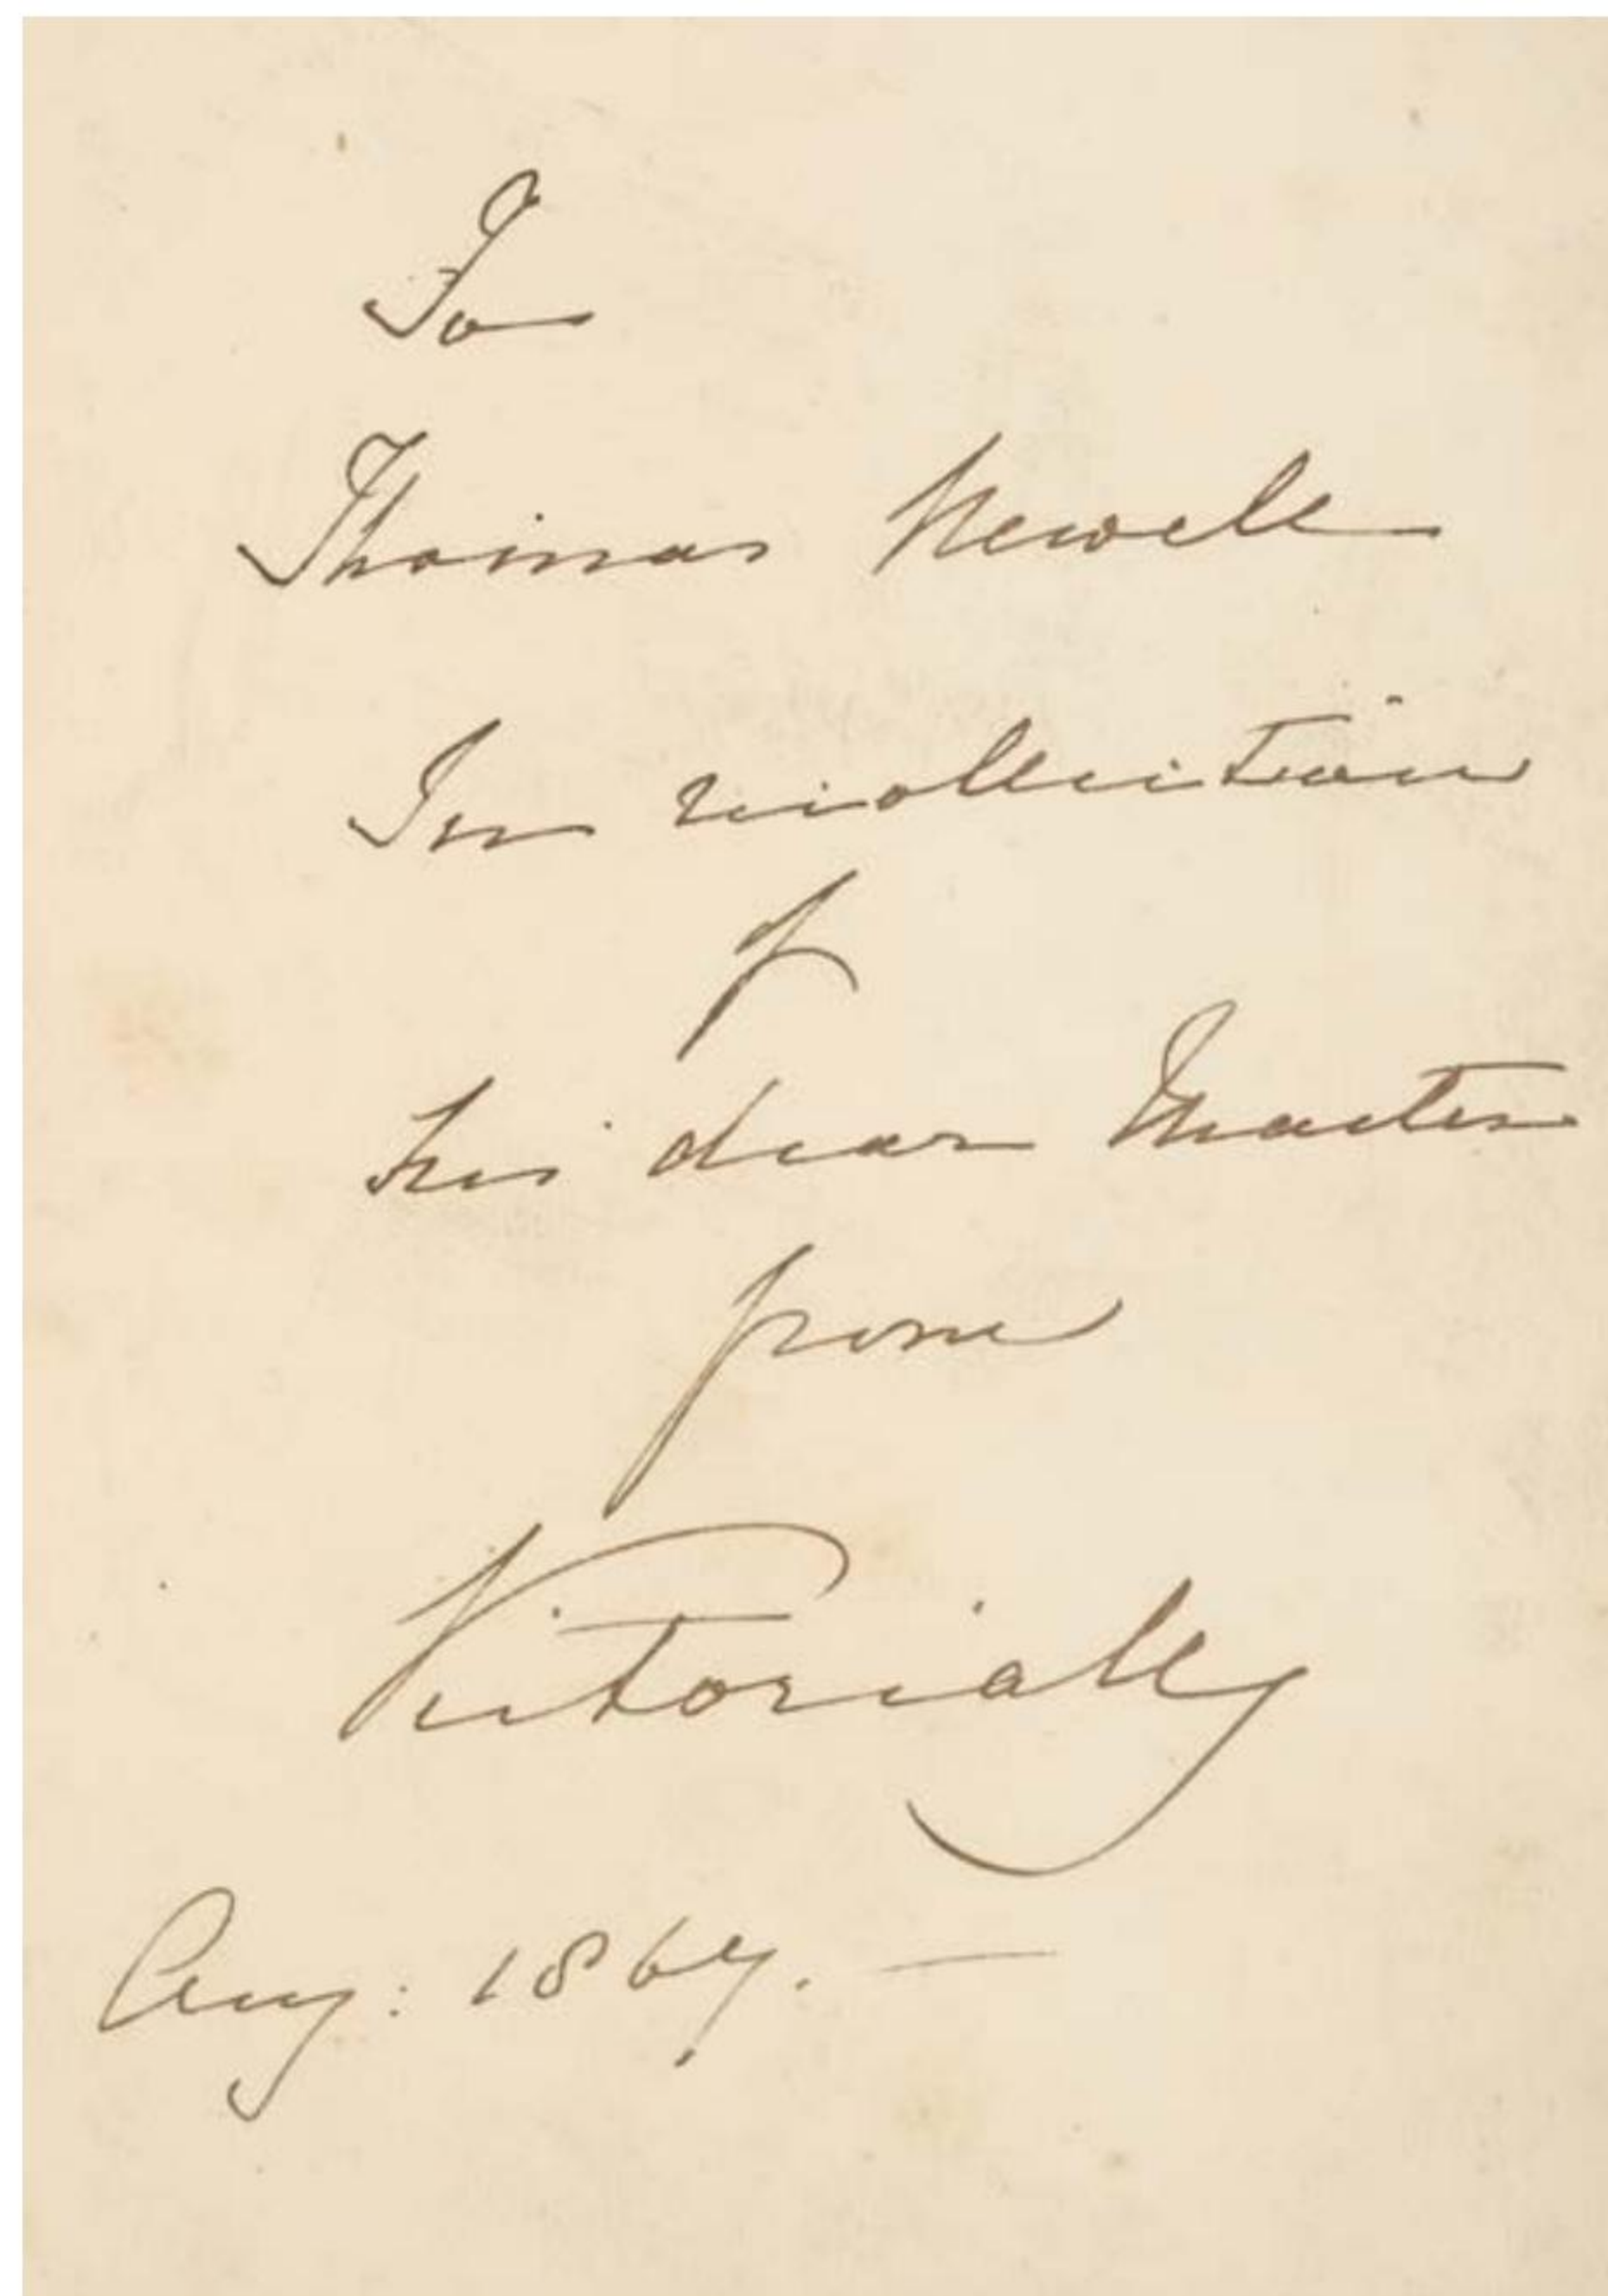 To
Thomas Newell
In recollection
of
his dear Master
from
Victoria R
Aug: 1867. —